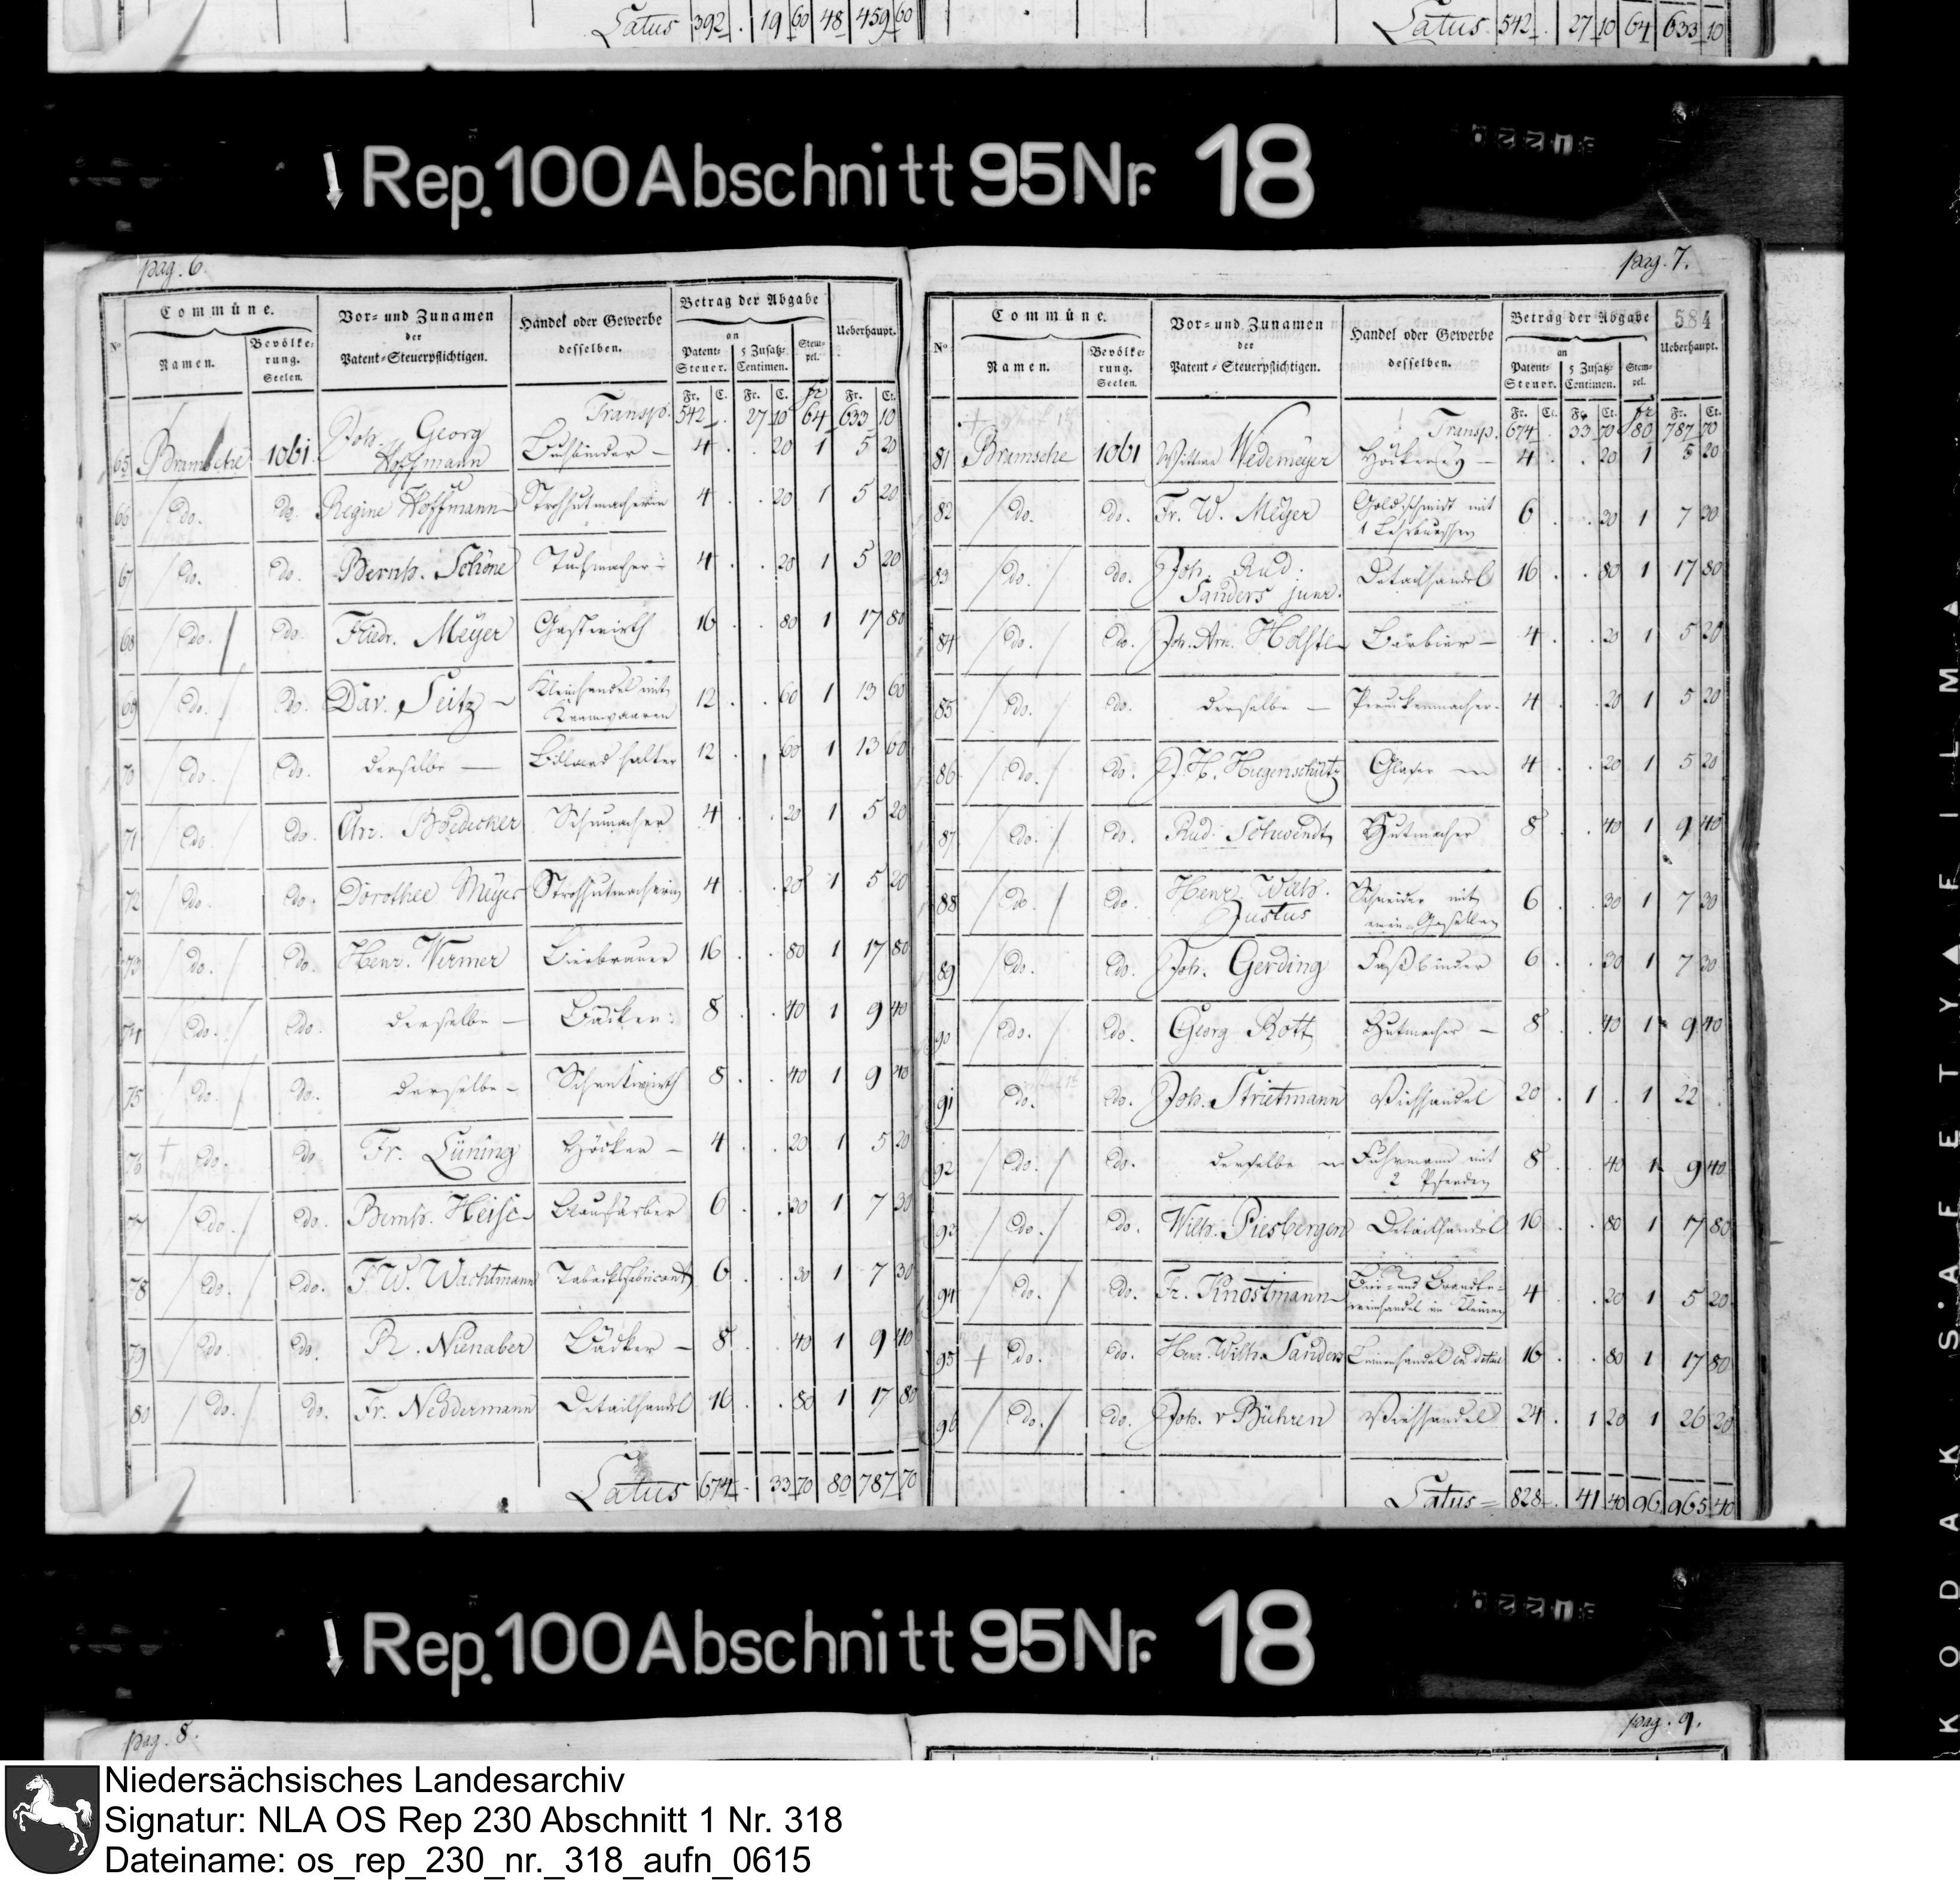 Latus 392 . 19 60 48 459 60
Latus 542 . 27 10 64 633 10
Rep. 100 Abschnitt 95 Nr. 18
pag. 6.
N° Commüne. Vor- und Zunamen der Patent-Steuerpflichtigen. Handel oder Gewerbe desselben. Betrag der Abgabe an Ueberhaupt.
Namen. Bevölkerung. Seelen. Patent-Steuer. 5 Zusatz-Centimen. Stempel.
Fr. C. Fr. C. fr Fr. Ct.
Transp. 542 . 27 10 64 633 10
65 Bramsche 1061. Joh. Georg Hoffmann Buchbinder – 4 . . 20 1 5 20
66 do. do. Regine Hoffmann Strohhutmacherin 4 . . 20 1 5 20
67 do. do. Bernh. Schöne Tuchmacher 4 . . 20 1 5 20
68 do. do. Friedr. Meyer Gastwirth 16 . . 80 1 17 80
69 do. do. Dav. Seitz – Kleinhandel mit Kramwaaren 12 . . 60 1 13 60
70 do. do. derselbe — Billard halter 12 . . 60 1 13 60
71 do. do. Chr. Bödecker Schumacher 4 . . 20 1 5 20
72 do. do. Dorothee Meyer Strohhutmacherin 4 . . 20 1 5 20
73 do. do. Henr. Wermer Bierbrauer 16 . . 80 1 17 80
74 do. do. derselbe – Bäcker 8 . . 40 1 9 40
75 do. do. derselbe – Schenkwirth 8 . . 40 1 9 40
76 † do. do. Fr. Lüning Höcker – 4 . . 20 1 5 20
77 do. do. Bernh. Heise Blaufärber 6 . . 30 1 7 30
78 do. do. F. W. Wachtmann Tabacksfabricant 6 . . 30 1 7 30
79 do. do. R. Nienaber Bäcker – 8 . . 40 1 9 40
80 do. do. Fr. Neddermann Detailhandel 16 . . 80 1 17 80
Latus 674 . 33 70 80 787 70
pag. 7.
584
N° Commüne. Vor- und Zunamen der Patent-Steuerpflichtigen. Handel oder Gewerbe desselben. Betrag der Abgabe an Ueberhaupt.
Namen. Bevölkerung. Seelen. Patent-Steuer. 5 Zusatz-Centimen. Stempel.
Fr. Ct. Fr. Ct. fr Fr. Ct.
Transp. 674 . 33 70 80 787 70
81 Bramsche 1061 Wittwe Wedemeyer Höckerey – 4 . . 20 1 5 20
82 do. do. Fr. W. Meyer Goldschmidt mit
1 Lehrburschen 6 . . 30 1 7 30
83 do. do. Joh. Rud.
Sanders junr. Detailhandel 16 . . 80 1 17 80
84 do. do. Joh. Arn. Holste Barbier – 4 . . 20 1 5 20
85 do. do. derselbe – Peruckenmacher 4 . . 20 1 5 20
86 do. do. J. H. Hugenschütz Glaser 4 . . 20 1 5 20
87 do. do. Rud. Schwendt Hutmacher 8 . . 40 1 9 40
88 do. do. Henr. Wilh.
Justus Schneider mit
einen Gesellen 6 . . 30 1 7 30
89 do. do. Joh. Gerding Faßbinder 6 . . 30 1 7 30
90 do. do. Georg Rott Hutmacher – 8 . . 40 1 9 40
91 do. do. Joh. Strietmann Viehhandel 20 . 1 . 1 22 .
92 do. do. derselbe Fuhrmann mit
2 Pferden 8 . . 40 1 9 40
93 do. do. Wilh. Piesbergen Detailhandel 16 . . 80 1 17 80
94 do. do. Fr. Knostmann Bier- und Brandte-
weinhandel im Kleinen 4 . . 20 1 5 20
95 † do. do. Henr. Wilh. Sanders Leinenhandel en detail 16 . . 80 1 17 80
96 do. do. Joh. v Bühren Viehhandel 24 . 1 20 1 26 20
Latus = 828 . 41 40 96 965 40
Rep. 100 Abschnitt 95 Nr. 18
pag. 8.
pag. 9.
KODAK SAFETY FILM
Niedersächsisches Landesarchiv
Signatur: NLA OS Rep 230 Abschnitt 1 Nr. 318
Dateiname: os_rep_230_nr._318_aufn_0615